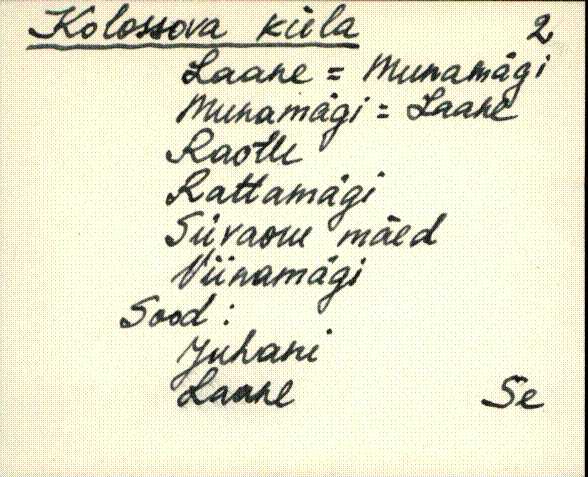 Kolossova küla 2
Laane = Munamägi
Munamägi = Laane
Raotu
Rattamägi
Siivaoru mäed
Viinamägi
Sood :
Juhani
Laane Se